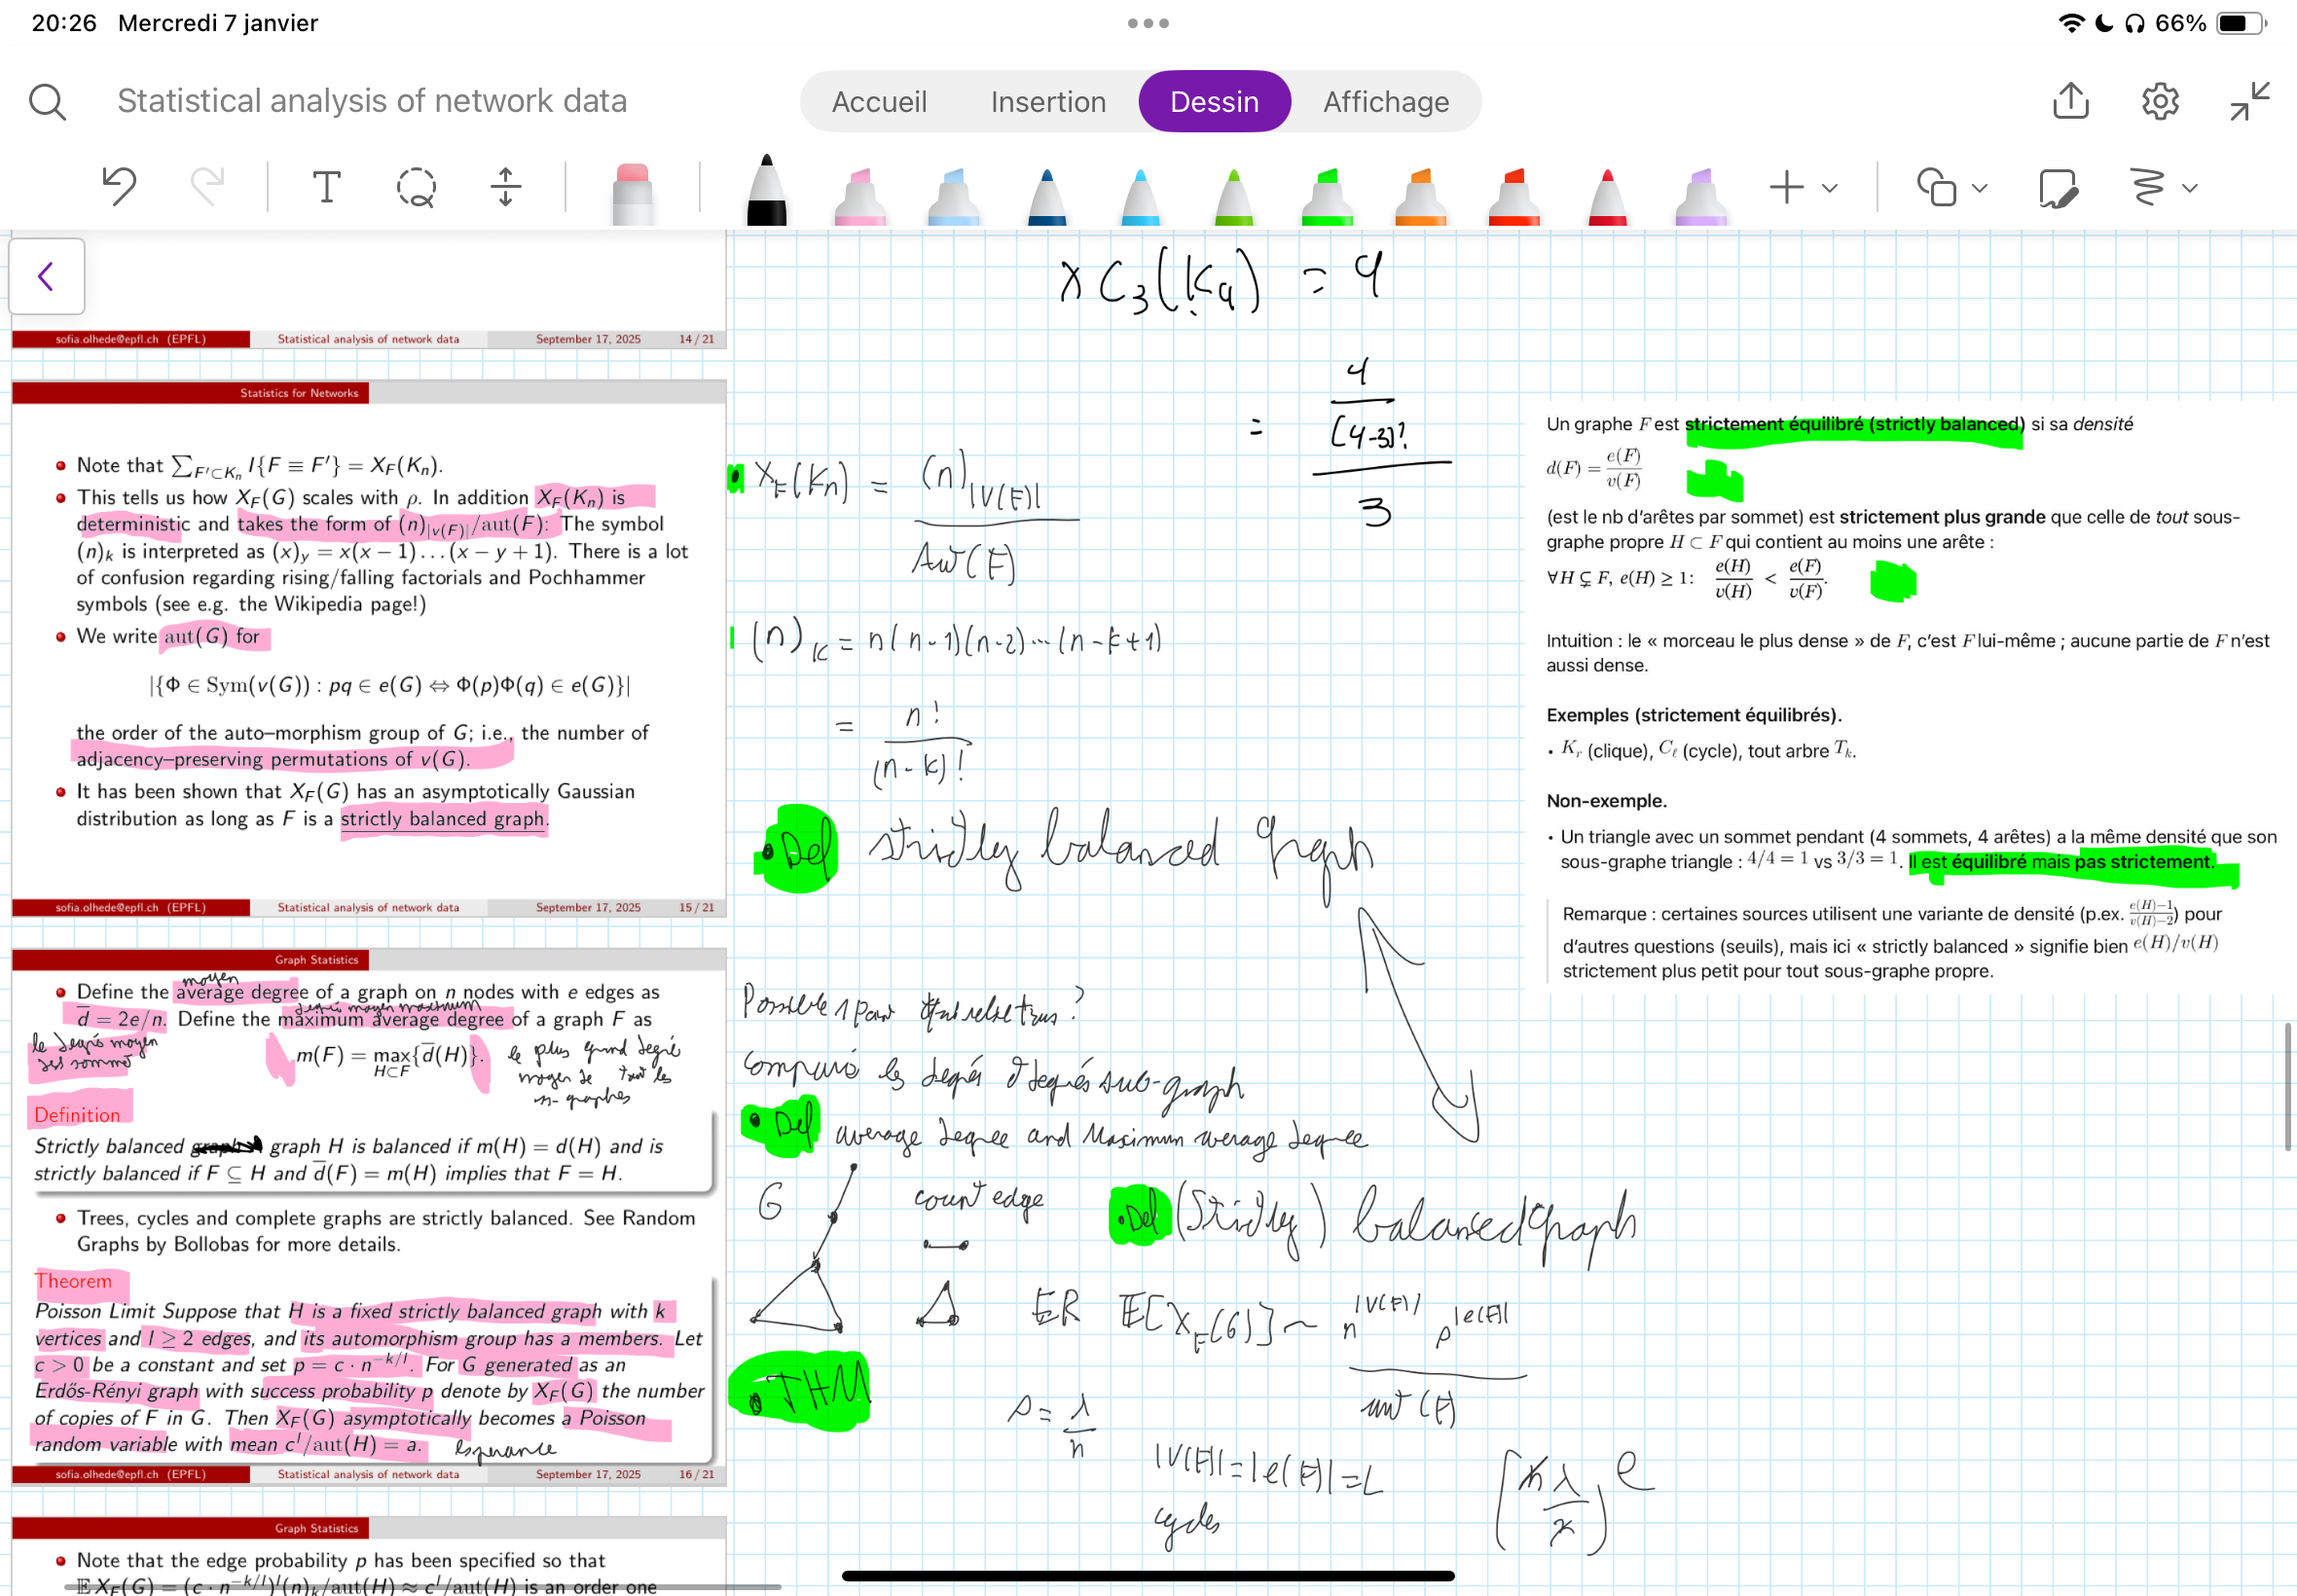 20:26 Mercredi 7 janvier
66%
Statistical analysis of network data
Accueil Insertion Dessin Affichage
sofia.olhede@epfl.ch (EPFL) Statistical analysis of network data September 17, 2025 14 / 21
Statistics for Networks
• Note that ∑_{F′⊂K_n} I{F ≡ F′} = X_F(K_n).
• This tells us how X_F(G) scales with ρ. In addition X_F(K_n) is
deterministic and takes the form of (n)_{|v(F)|}/aut(F): The symbol
(n)_k is interpreted as (x)_y = x(x − 1) . . . (x − y + 1). There is a lot
of confusion regarding rising/falling factorials and Pochhammer
symbols (see e.g. the Wikipedia page!)
• We write aut(G) for
|{Φ ∈ Sym(v(G)) : pq ∈ e(G) ⇔ Φ(p)Φ(q) ∈ e(G)}|
the order of the auto–morphism group of G; i.e., the number of
adjacency–preserving permutations of v(G).
• It has been shown that X_F(G) has an asymptotically Gaussian
distribution as long as F is a strictly balanced graph.
sofia.olhede@epfl.ch (EPFL) Statistical analysis of network data September 17, 2025 15 / 21
Graph Statistics
moyen
• Define the average degree of a graph on n nodes with e edges as
degré moyen maximum
d̄ = 2e/n. Define the maximum average degree of a graph F as
le degré moyen
des sommet
m(F) = max_{H⊂F} {d̄(H)}.
le plus grand degré
moyen de tout les
ss-graphes
Definition
Strictly balanced graph graph H is balanced if m(H) = d(H) and is
strictly balanced if F ⊆ H and d̄(F) = m(H) implies that F = H.
• Trees, cycles and complete graphs are strictly balanced. See Random
Graphs by Bollobas for more details.
Theorem
Poisson Limit Suppose that H is a fixed strictly balanced graph with k
vertices and l ≥ 2 edges, and its automorphism group has a members. Let
c > 0 be a constant and set p = c · n^{−k/l}. For G generated as an
Erdős-Rényi graph with success probability p denote by X_F(G) the number
of copies of F in G. Then X_F(G) asymptotically becomes a Poisson
random variable with mean c^l/aut(H) = a. Esperance
sofia.olhede@epfl.ch (EPFL) Statistical analysis of network data September 17, 2025 16 / 21
Graph Statistics
• Note that the edge probability p has been specified so that
𝔼X_F(G) = (c · n^{−k/l})^l (n)_k/aut(H) ≈ c^l/aut(H) is an order one
X C_3(K_4) = 4
= 4/(4-3)! / 3
• X_F(K_n) = (n)_{|V(F)|} / Aut(F)
(n)_k = n(n-1)(n-2)...(n-k+1)
= n! / (n-k)!
• Def strictly balanced graph
Possible 1 par
comparé les degrés degrés sub-graph
• Def average degree and Maximum average degree
G count edge
• Def (Strictly) balanced graph
ER 𝔼[X_F(G)] ~ n^{|V(F)|} ρ^{|e(F)|} / aut(F)
• THM
ρ = λ/n
|V(F)| = |e(F)| = L
cycles
(n λ/n)^e
Un graphe F est strictement équilibré (strictly balanced) si sa densité
d(F) = e(F)/v(F)
(est le nb d'arêtes par sommet) est strictement plus grande que celle de tout sous-
graphe propre H ⊂ F qui contient au moins une arête :
∀H ⊊ F, e(H) ≥ 1: e(H)/v(H) < e(F)/v(F).
Intuition : le « morceau le plus dense » de F, c'est F lui-même ; aucune partie de F n'est
aussi dense.
Exemples (strictement équilibrés).
• K_r (clique), C_ℓ (cycle), tout arbre T_k.
Non-exemple.
• Un triangle avec un sommet pendant (4 sommets, 4 arêtes) a la même densité que son
sous-graphe triangle : 4/4 = 1 vs 3/3 = 1. Il est équilibré mais pas strictement.
Remarque : certaines sources utilisent une variante de densité (p.ex. e(H)−1/v(H)−2) pour
d'autres questions (seuils), mais ici « strictly balanced » signifie bien e(H)/v(H)
strictement plus petit pour tout sous-graphe propre.